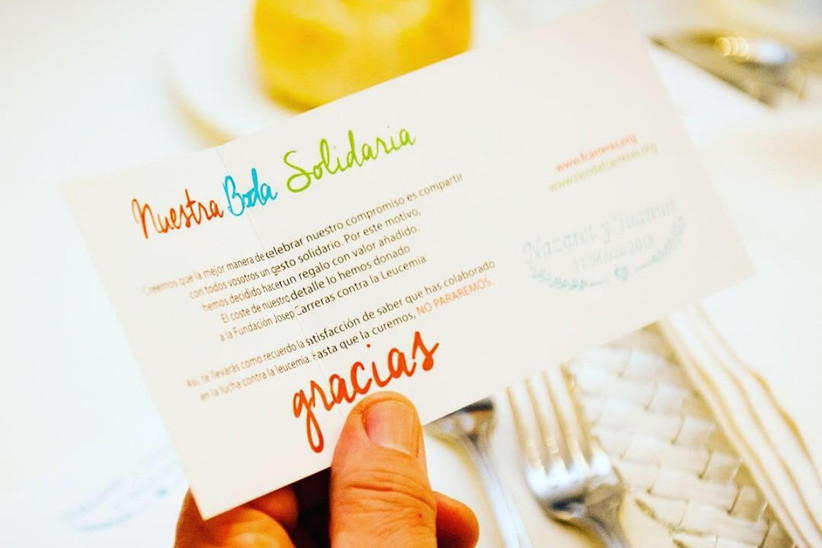 Nuestra Boda Solidaria
Creemos que la mejor manera de celebrar nuestro compromiso es compartir
con todos vosotros un gesto solidario. Por este motivo,
hemos decidido hacer un regalo con valor añadido.
El coste de nuestro detalle lo hemos donado
a la Fundación Josep Carreras contra la Leucemia.
Así, te llevarás como recuerdo la satisfacción de saber que has colaborado
en la lucha contra la leucemia. Hasta que la curemos, NO PARAREMOS.
gracias
www.fcarreras.org
www.tiendafcarreras.org
Nazaret y Juanmi